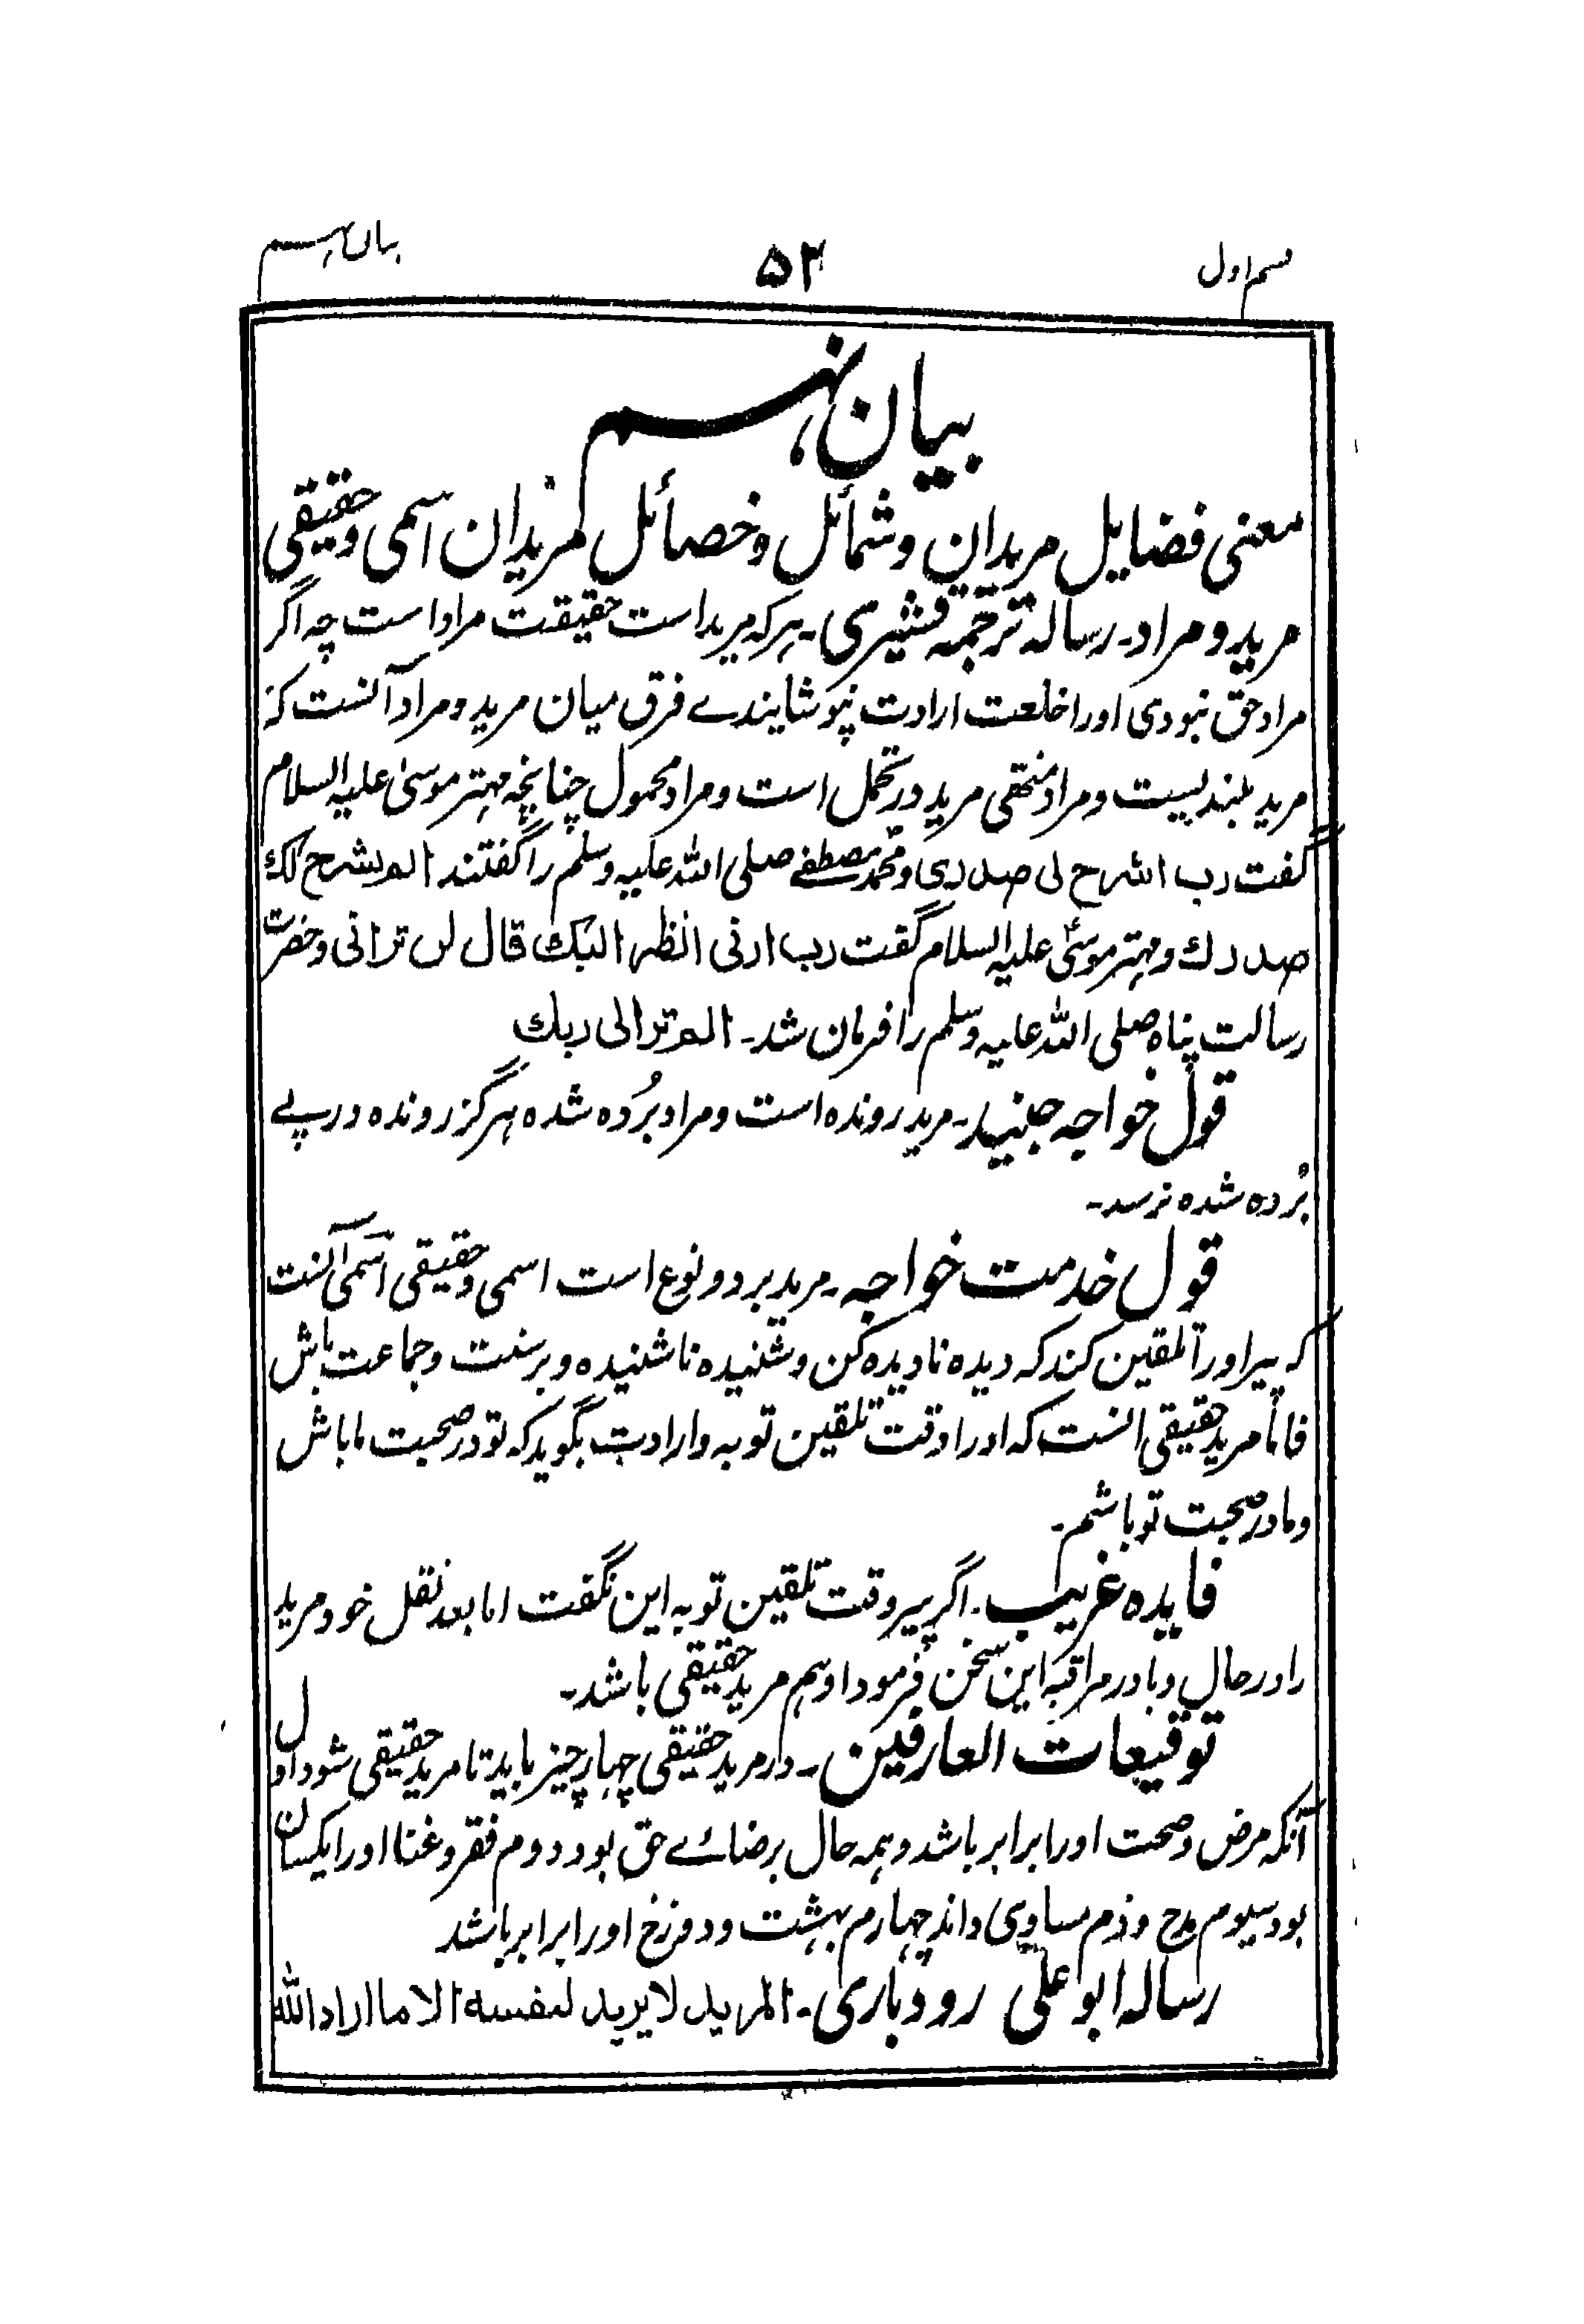 قسم اول
۵۲
بیان نہم
بیان نہم
معنی فضایل مریدان وشمائل وخصائل مریدان اسمی وحقیقی
مرید ومراد۔ رسالہ ترجمہ قشیری۔ ہرکہ مرید است حقیقت مراد است چہ اگر
مراد حق نبودی اورا خلعت ارادت نپوشایندے فرق میان مرید ومراد آنست کہ
مرید بلند بیست ومراد منتہی مرید در تحمل است ومراد محمول چنانچہ مہتر موسیٰ علیہ السلام
گفت رب اشرح لی صدری ومحمد مصطفےٰ صلی اللہ علیہ وسلم را گفتند الم نشرح لک
صدرك ومہتر موسیٰ علیہ السلام گفت رب ارنی انظر الیک قال لن ترانی وحضرت
رسالت پناہ صلی اللہ علیہ وسلم را فرمان شد۔ الم تر الی ربك
قول خواجہ جنید۔ مرید روندہ است ومراد بُردہ شدہ ہرگز روندہ درپے
بُردہ شدہ نرسد۔
قول خدمت خواجہ۔ مرید بر دو نوع است اسمی وحقیقی اسمی آنست
کہ پیر اورا تلقین کند کہ دیدہ نادیدہ کن وشنیدہ ناشنیدہ وبر سنت وجماعت باش
فاما مرید حقیقی آنست کہ اورا وقت تلقین توبہ وارادت بگوید کہ تو در صحبت ما باش
وما در صحبت تو باشم۔
فایدہ غریب۔ اگر پیر وقت تلقین توبہ این نگفت اما بعد نقل خود مرید
را در حال ویا در مراقبہ این سخن فرمود او ہم مرید حقیقی باشد۔
توقیعات العارفین۔ در مرید حقیقی چہار چیز باید تا مرید حقیقی شود اول
آنکہ مرض وصحت اورا برابر باشد وہمہ حال برضائے حق بود دوم فقر وغنا اورا یکسان
بود سیوم مدح وذم مساوی داند چہارم بہشت ودوزخ اورا برابر باشد
رسالہ ابو علی رودباری۔ المرید لا یرید لنفسه الا ما اراد الله